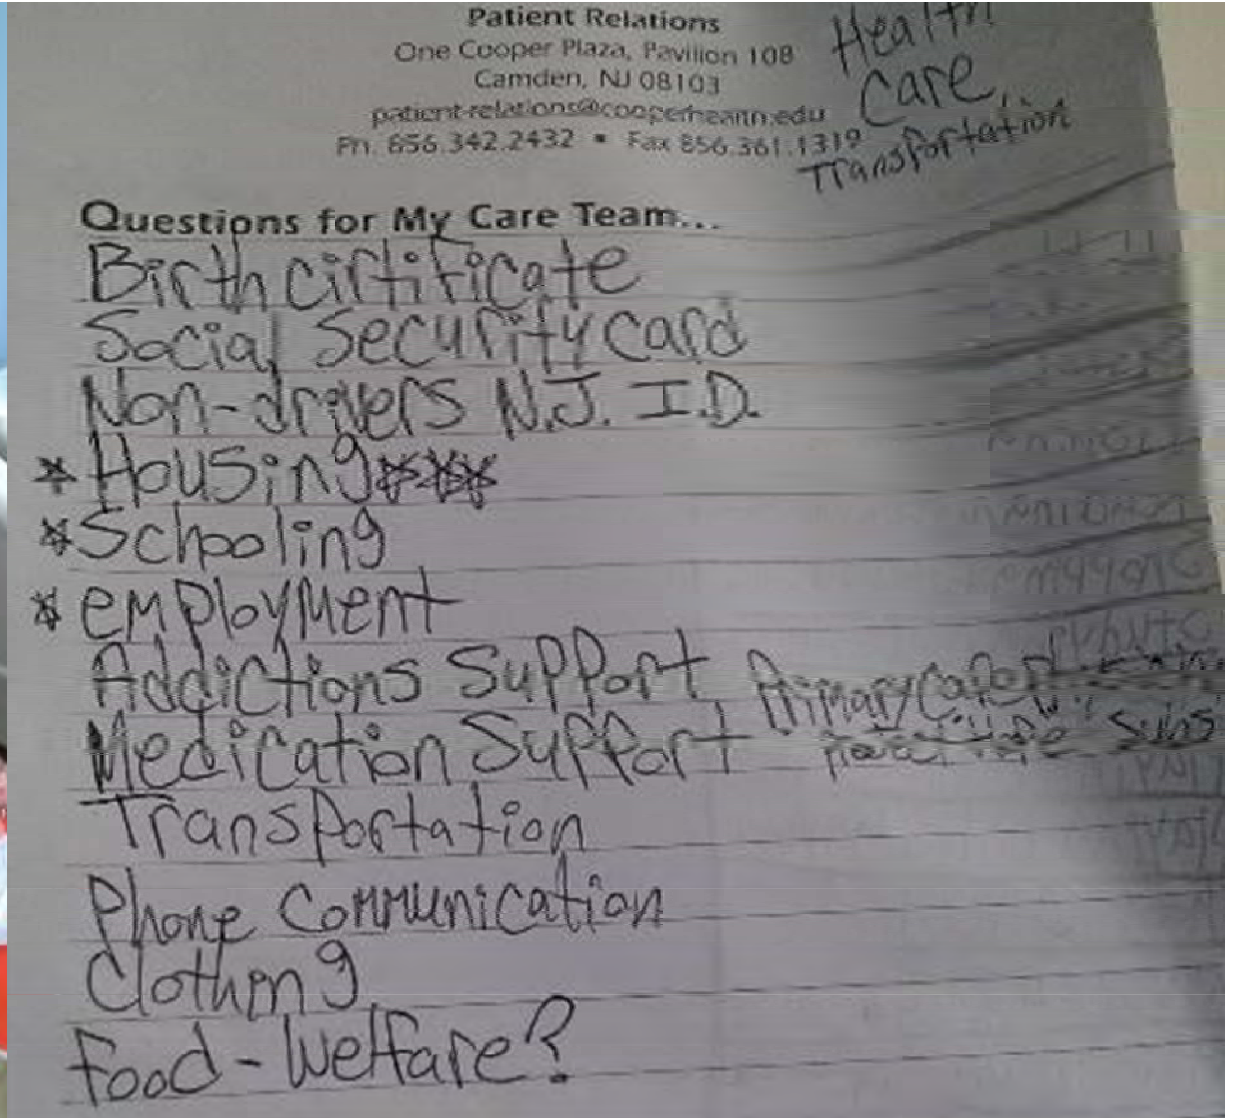 Patient Relations
One Cooper Plaza, Pavilion 108
Camden, NJ 08103
patient-relations@cooperhealth.edu
Ph. 856.342.2432 • Fax 856.361.1319
Health
Care,
Transportation
Questions for My Care Team...
Birth cirtificate
Social Security Card
Non-drivers N.J. I.D.
* Housing ***
* Schooling
* employment
Addictions Support
Medication Support Primary Care
Transportation
Phone Communication
Clothing
Food - Welfare?